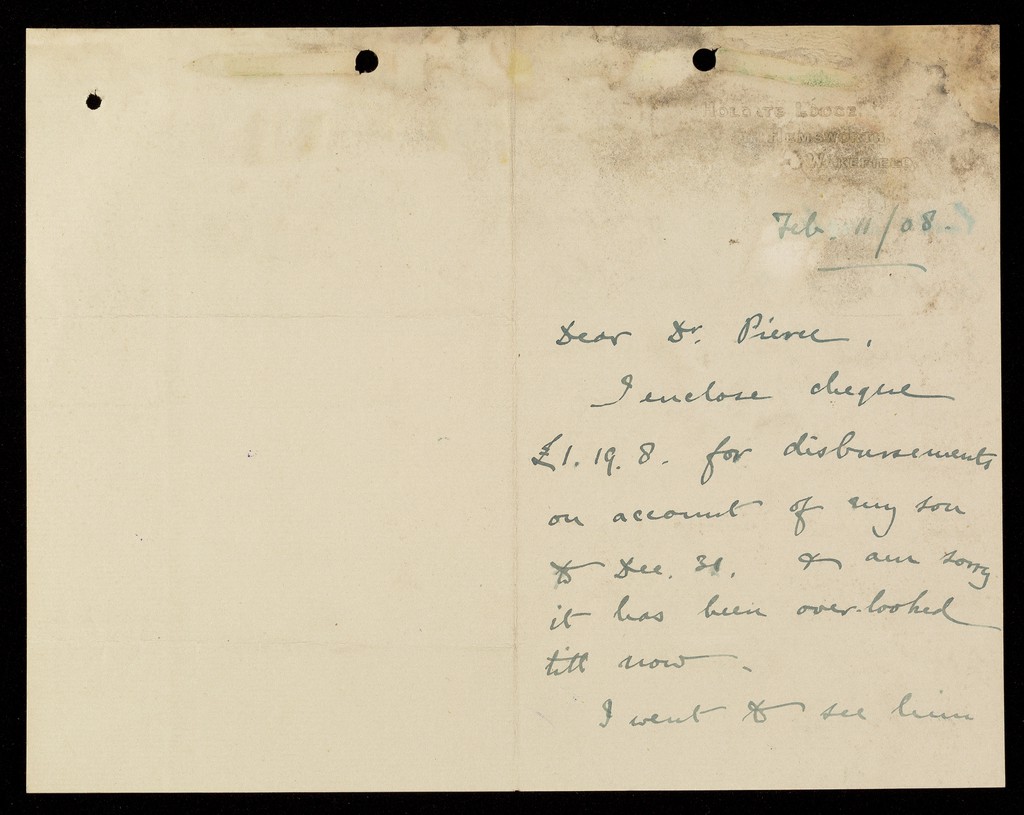 HOLGATE LODGE,
HEMSWORTH,
WAKEFIELD
Feb. 11/08.
Dear Dr. Pierce,
I enclose cheque
£1. 19. 8. for disbursements
on account of my son
to Dec. 31. & am sorry
it has been over-looked
till now.
I went to see him